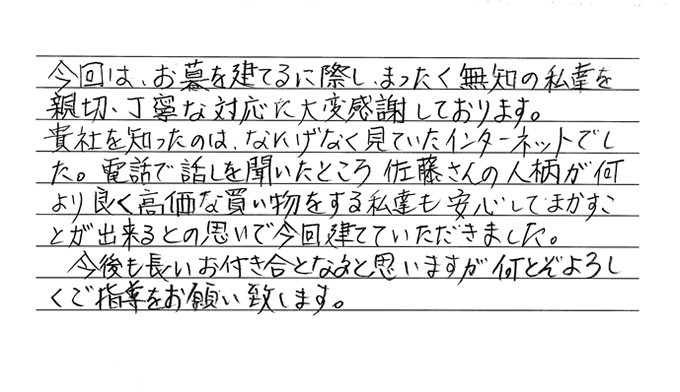 今回は、お墓を建てるに際し、まったく無知の私達を
親切、丁寧な対応に大変感謝しております。
貴社を知ったのは、なにげなく見ていたインターネットでし
た。電話で話しを聞いたところ 佐藤さんの人柄が何
より良く高価な買い物をする私達も安心してまかすこ
とが出来るとの思いで今回建てていただきました。
今後も長いお付き合となると思いますが何とぞよろし
くご指導をお願い致します。